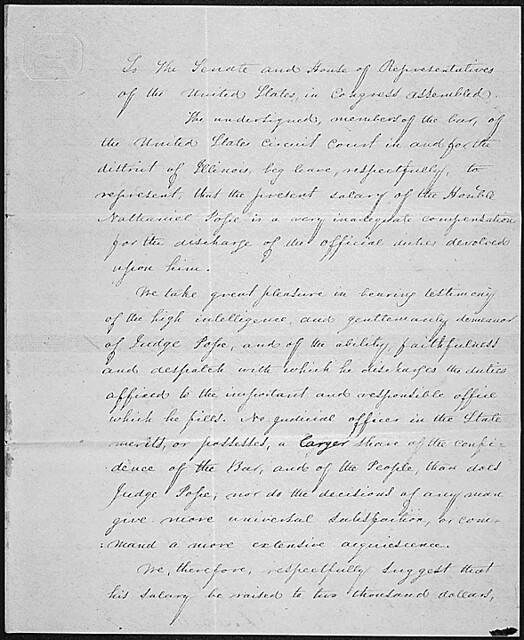 To The Senate and House of Representatives
of the United States, in Congress assembled.
The undersigned, members of the bar, of
the United States Circuit Court in and for the
district of Illinois, beg leave, respectfully, to
represent, that the present salary of the Honble
Nathaniel Pope is a very inadequate compensation
for the discharge of the official duties devolved
upon him.
We take great pleasure in bearing testimony
of the high intelligence, and gentlemanly demeanor
of Judge Pope, and of the ability, faithfulness
and despatch with which he discharges the duties
affixed to the important and responsible office
which he fills. No judicial officer in the State
merits, or possesses, a larger share of the confi-
dence of the Bar, and of the People, than does
Judge Pope; nor do the decisions of any man
give more universal satisfaction, or com-
:mand a more extensive acquiescence.
We, therefore, respectfully suggest that
his salary be raised to two thousand dollars,